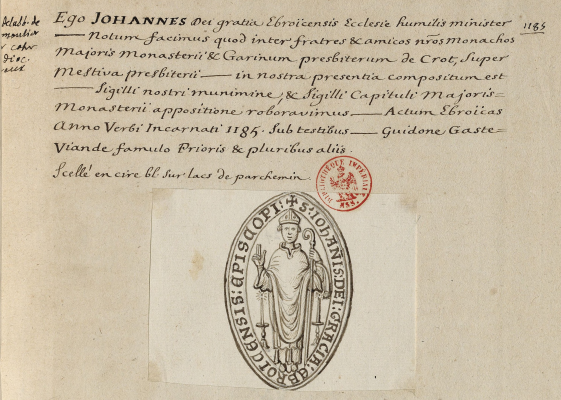 Ego JOHANNES Dei gratia Ebroicensis Ecclesie humilis minister
— Notum facimus quod inter fratres & amicos nros Monachos
Majoris Monasterii & Garinum presbiterum de Crot, super
Mestiva presbiterii — in nostra presentia compositum est
— Sigilli nostri munimine, & Sigilli Capituli Majoris=
Monasterii appositione roboravimus — Actum Ebroicas
Anno Verbi Incarnati 1185. Sub testibus — Guidone Gaste=
Viande famulo Prioris & pluribus aliis.
Scellé en cire bl sur lacs de parchemin.
1185
de
BIBLIOTHÈQUE IMPÉRIALE
MSS.
✝ S: IOHANIS: DEI: GRACIA: EBROICENSIS: EPISCOPI: